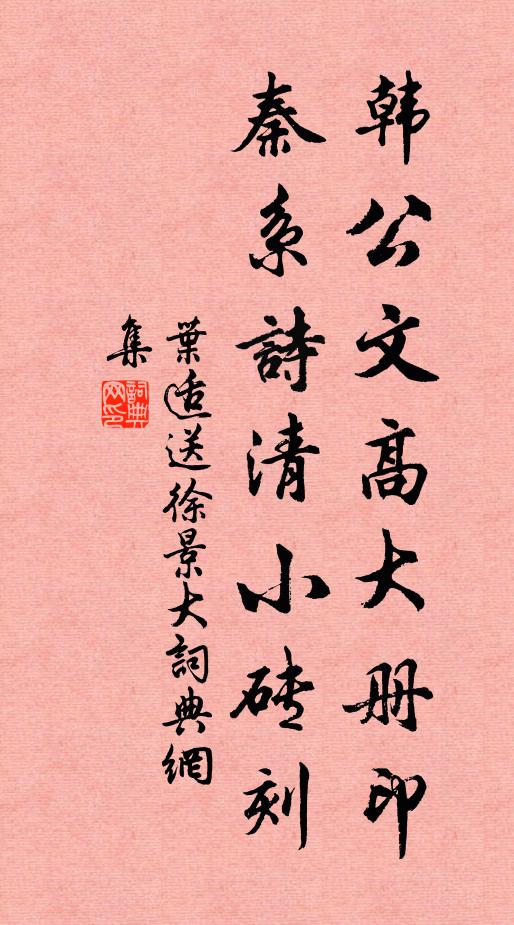 韩公文高大册印
秦系詩清小砖刻
葉适送徐景大詞典網
集
詞典网印